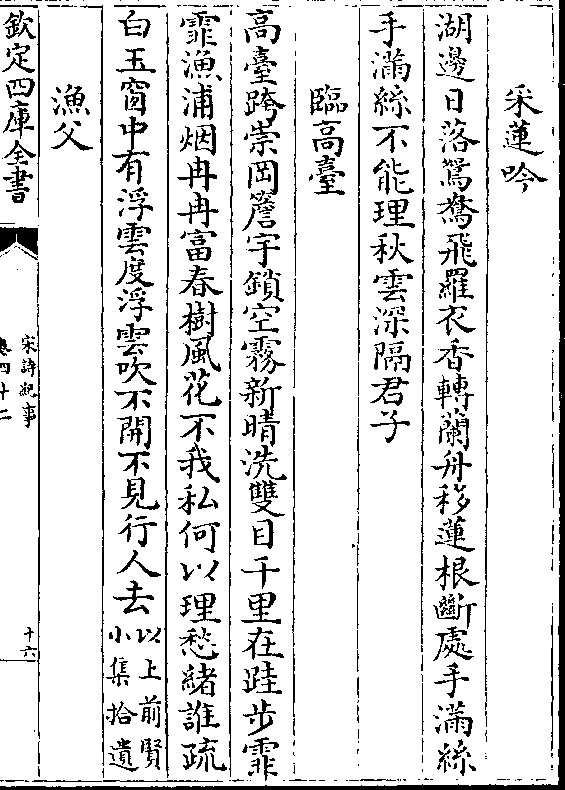 采蓮吟
湖邊日落鴛鴦飛羅衣香轉蘭舟移蓮根斷處手滿絲
手滿絲不能理秋雲深隔君子
臨高臺
高臺跨崇岡簷宇鎖空霧新晴洗雙目千里在跬步霏
霏漁浦烟冉冉富春樹風花不我私何以理愁緒誰疏
白玉窗中有浮雲度浮雲吹不開不見行人去以上前賢
小集拾遺
漁父
欽定四庫全書
宋詩紀事
卷四十二
十六